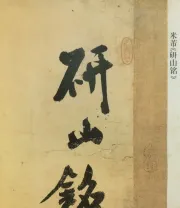 研山銘
米芾《研山铭》